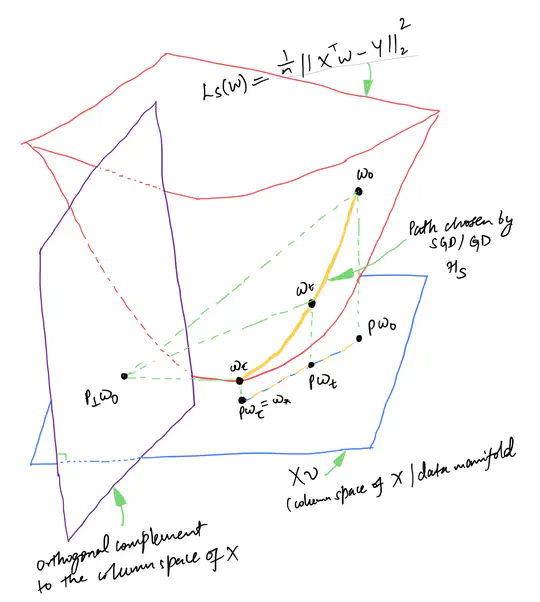 Ls(W) = 1/n ||X^T W - Y||_2^2
W0
Path chosen by
SGD/GD
Hs
Wt
PW0
Wτ
P⊥W0
PWt
PWτ = W*
Xν
(column space of X / data manifold
Orthogonal complement
to the column space of X